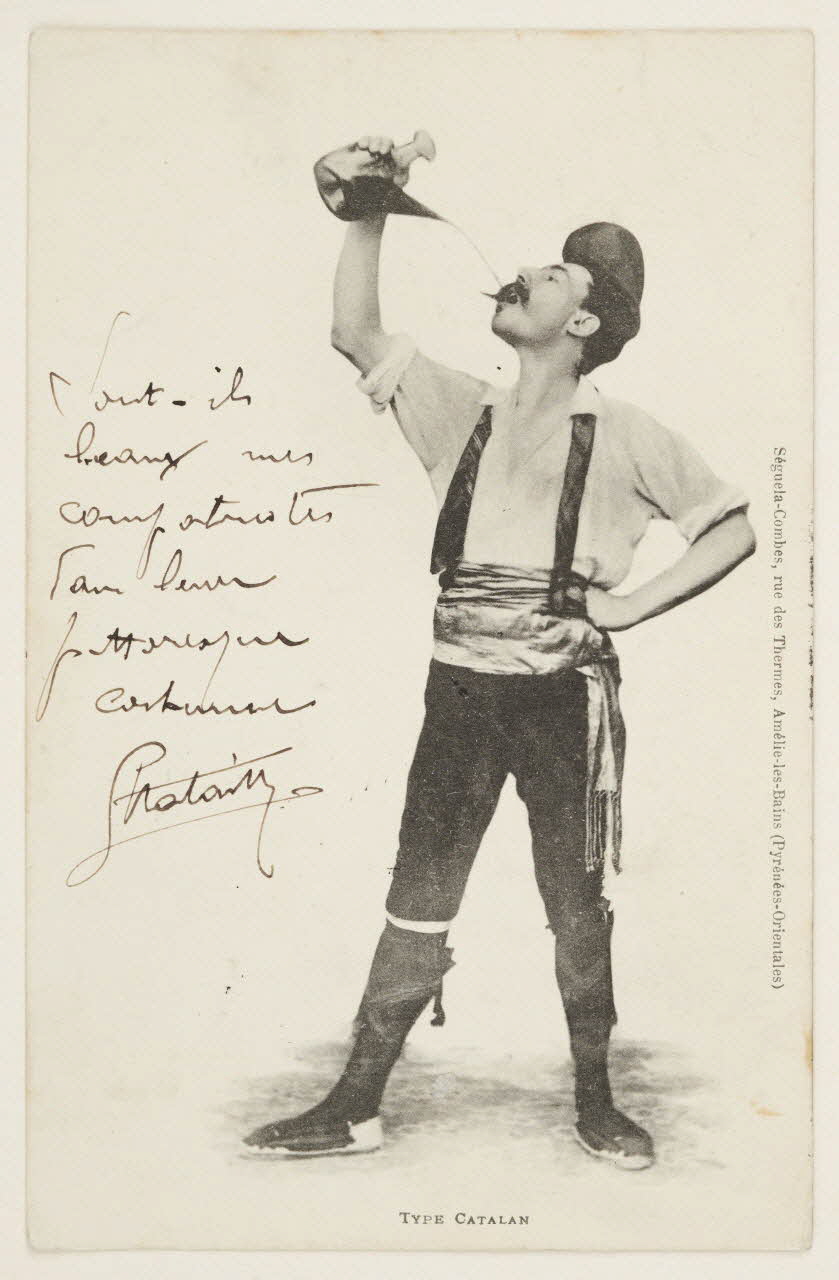 Sont-ils
beaux mes
compatriotes
dans leur
pittoresque
costume
Séguela-Combes, rue des Thermes, Amélie-les-Bains (Pyrénées-Orientales)
TYPE CATALAN